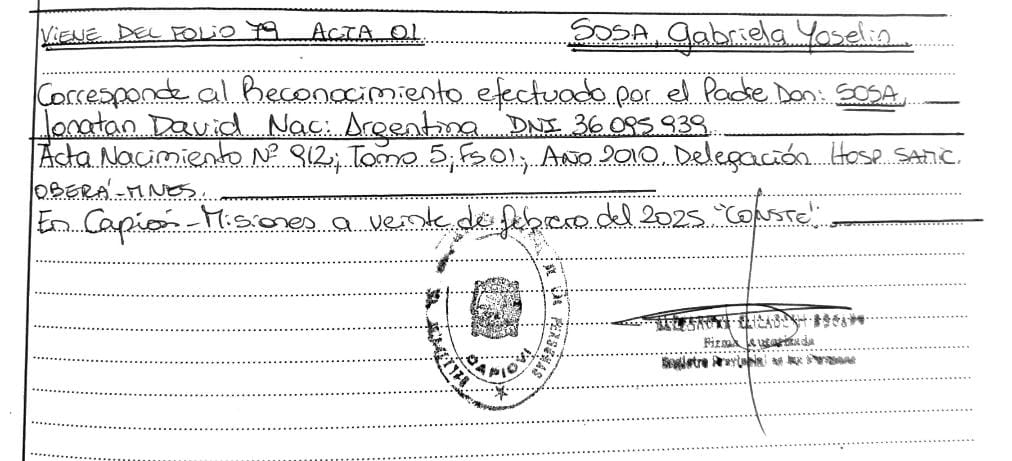 VIENE DEL FOLIO 79 ACTA 01 SOSA, Gabriela Yoselin.
Corresponde al Reconocimiento efectuado por el Padre Don: SOSA,
Jonatan David Nac: Argentina DNI 36095939
Acta Nacimiento Nº 912; Tomo 5; Fs 01; AÑO 2010. Delegación Hosp SAMIC.
OBERÁ-MNES.
En Capioví-Misiones a veinte de febrero del 2025 "CONSTE".
DE LAS PERSONAS
CAPIOVI
Firma Autorizada
Registro Provincial de las Personas